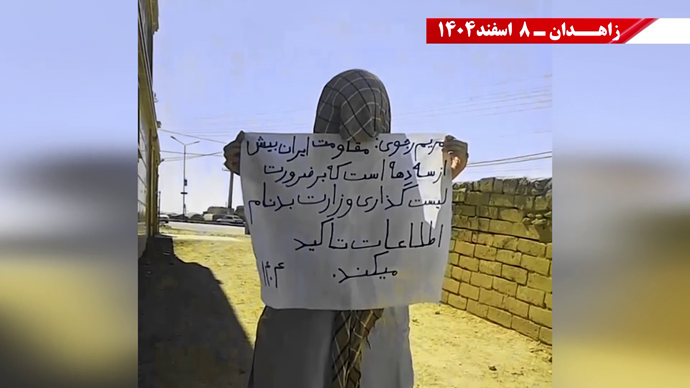 زاهدان ـ ۸ اسفند۱۴۰۴
مریم رجوی: مقاومت ایران بیش
از سه دهه است که بر ضرورت
لیست گذاری وزارت بدنام
اطلاعات تاکید
میکند.
۱۴۰۴